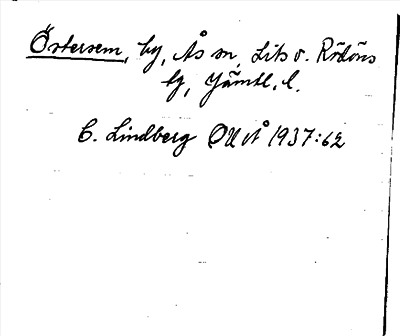 Östersem, by, Ås sn, Lits o. Rödöns
tg, Jämtl. l.
C. Lindberg OUÅ 1937:62